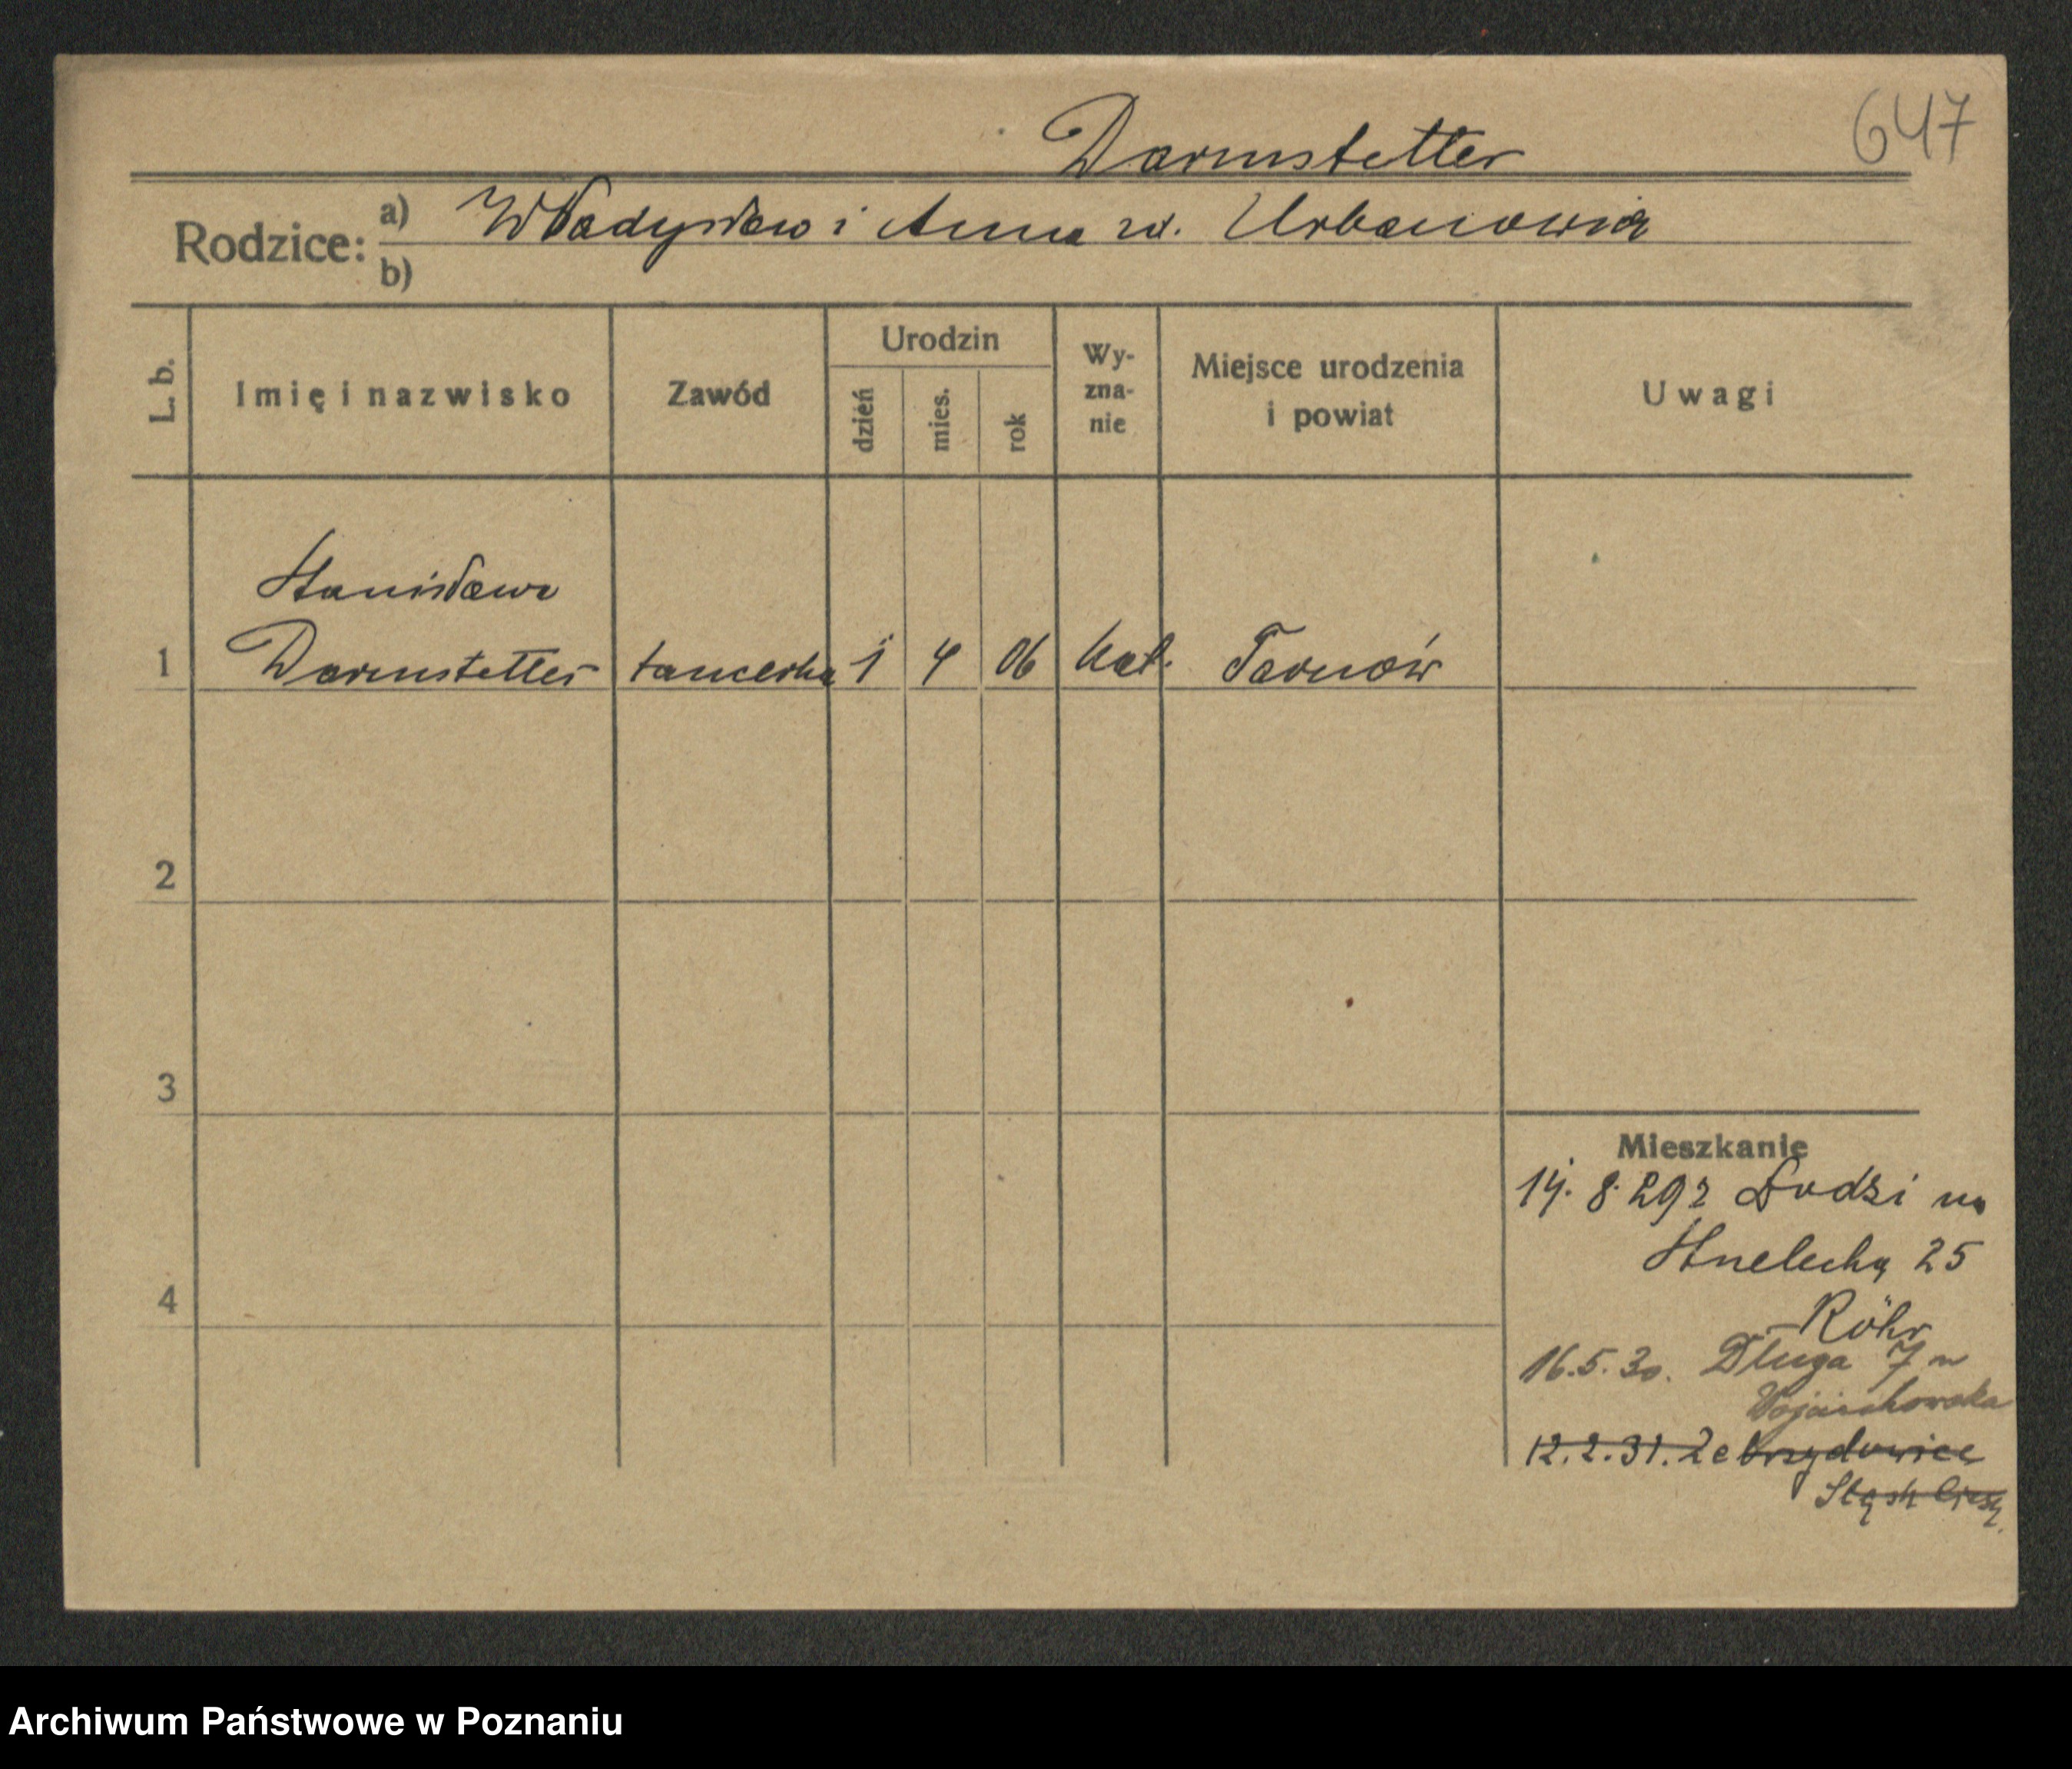 647
Darmstetter
Rodzice: a) Władysław i Anna zd. Urbanowicz
b)
L. b.
Imię i nazwisko
Zawód
Urodzin
dzień
mies.
rok
Wy-
zna-
nie
Miejsce urodzenia
i powiat
Uwagi
Stanisława
1 Darmstetter tancerka 1 4 06 kat. Tarnów
2
3
4
Mieszkanie
14. 8. 29 z Łodzi na
Strzelecką 25
Röhr
16.5.30. Długa 7
Wojciechowska
12.2.31. Zebrzydowice
Śląsk Ciesz.